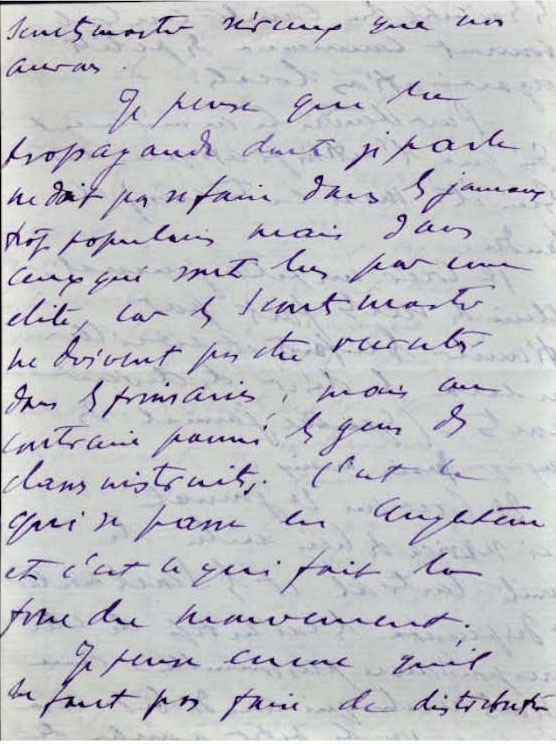 Scoutmaster sérieux que nous
aurons.
Je pense que la
propagande dont je parle
ne doit pas se faire dans les journaux
trop populaires mais dans
ceux qui sont lus par une
élite, car les Scoutmaster
ne doivent pas être recrutés
dans les primaires, mais au
contraire parmi les gens des
classes instruits. C'est ce
qui se passe en Angleterre
et c'est ce qui fait la
force du mouvement.
Je pense encore qu'il
ne faut pas faire de distribution